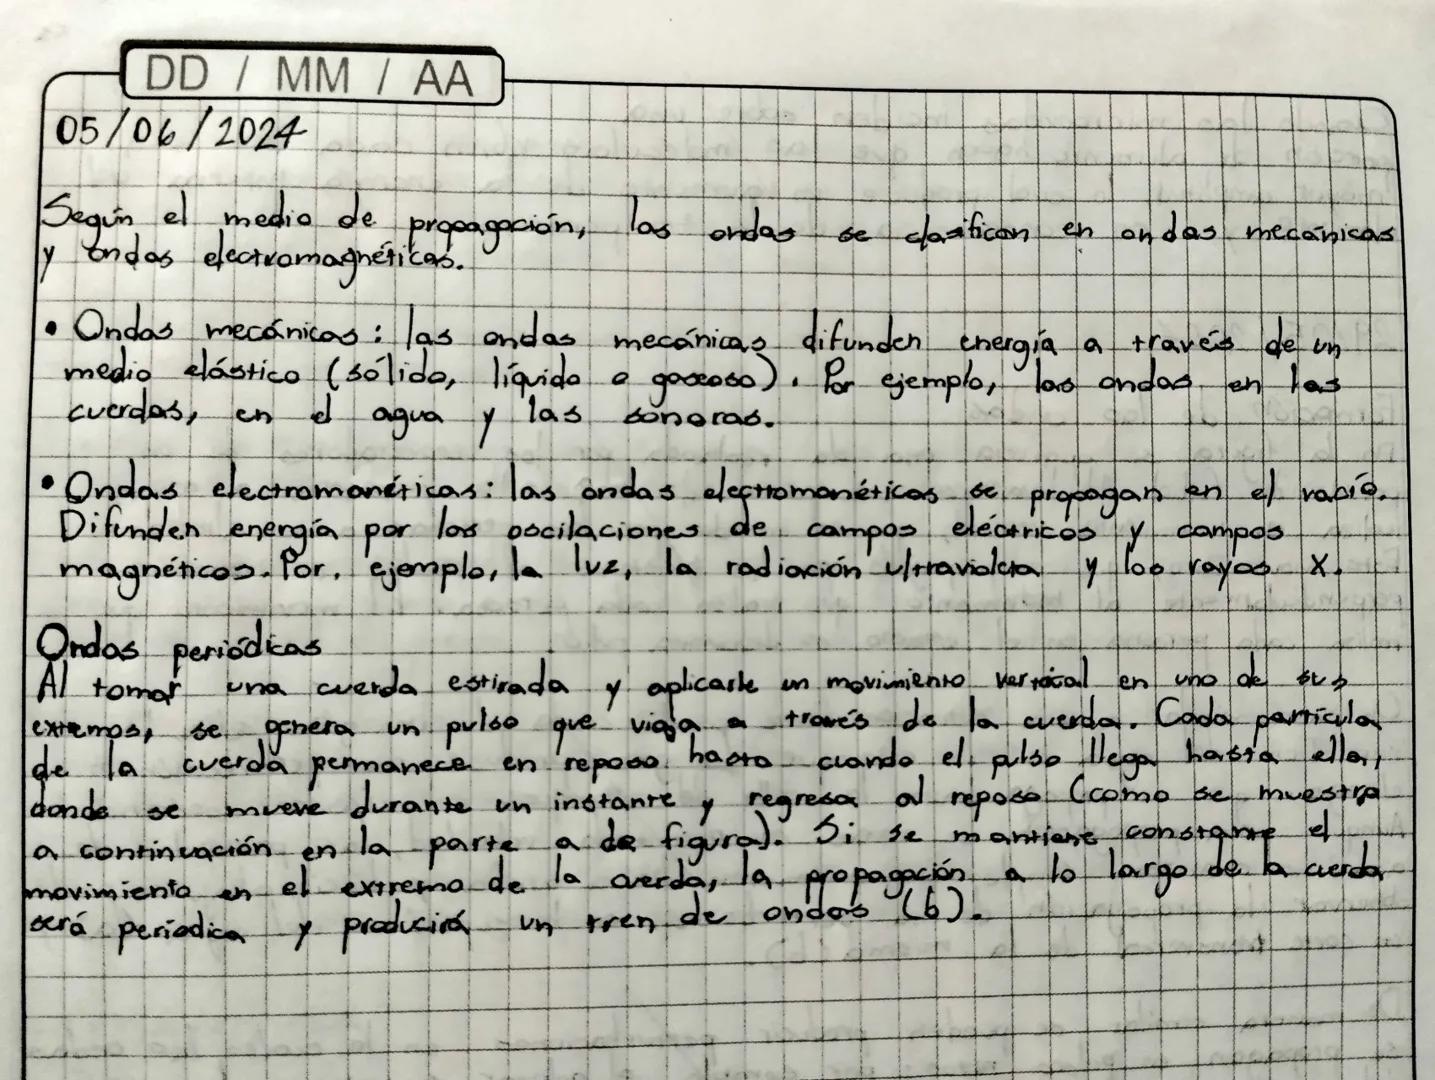 DD / MM / AA
05/06/2024
Según el medio de propagación, las ondas se clasifican en ondas mecánicas
y ondas electromagnéticas.
• Ondas mecánicas: las ondas mecánicas difunden energía a través de un
medio elástico (sólido, líquido o gaseoso). Por ejemplo, las ondas en las
cuerdas, en el agua y las sonoras.
• Ondas electromanéticas: las ondas electromanéticas se propagan en el vacío.
Difunden energía por las oscilaciones de campos eléctricos y campos
magnéticos. Por, ejemplo, la luz, la radiación ultravioleta y los rayos X.
Ondas periódicas
Al tomar una cuerda estirada y aplicarle un movimiento vertical en uno de sus
extremos, se genera un pulso que viaja a través de la cuerda. Cada partícula
de la cuerda permanece en reposo hasta cuando el pulso llega hasta ella,
donde se mueve durante un instante y regresa al reposo (como se muestra
a continuación en la parte a de figura). Si se mantiene constante el
movimiento en el extremo de la cuerda, la propagación a lo largo de la cuerda
será periódica y producirá un tren de ondas (b).